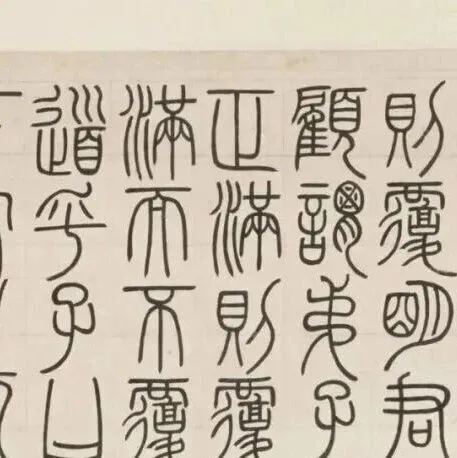 則覆明君
顧謂弟子
正滿則覆
滿而不覆
道乎子曰